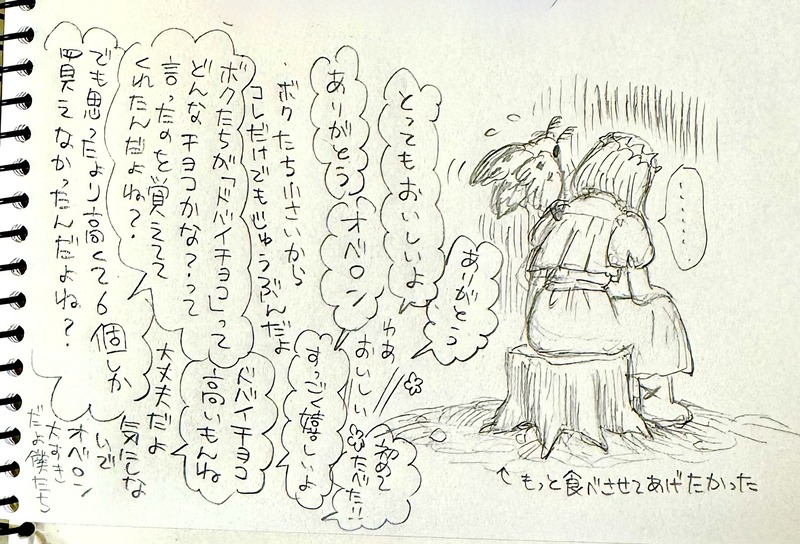 ……
ありがとう
とってもおいしいよ
わあ
おいしい
ありがとう
オベロン
初めて
たべた!!
すっごく嬉しいよ
ボクたち小さいから
コレだけでもじゅうぶんだよ
ドバイチョコ
高いもんね
ボクたちが「ドバイチョコ」って
どんなチョコかな?って
言ったのを覚えてて
くれたんだよね?
でも思ったより高くて6個しか
買えなかったんだよね?
大丈夫だよ
気にしな
いで
オベロン
大すき
だよ僕たち
↖もっと食べさせてあげたかった